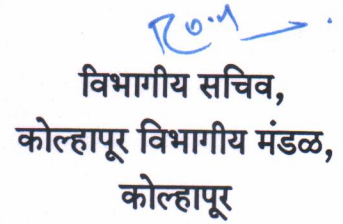 विभागीय सचिव,
कोल्हापूर विभागीय मंडळ,
कोल्हापूर